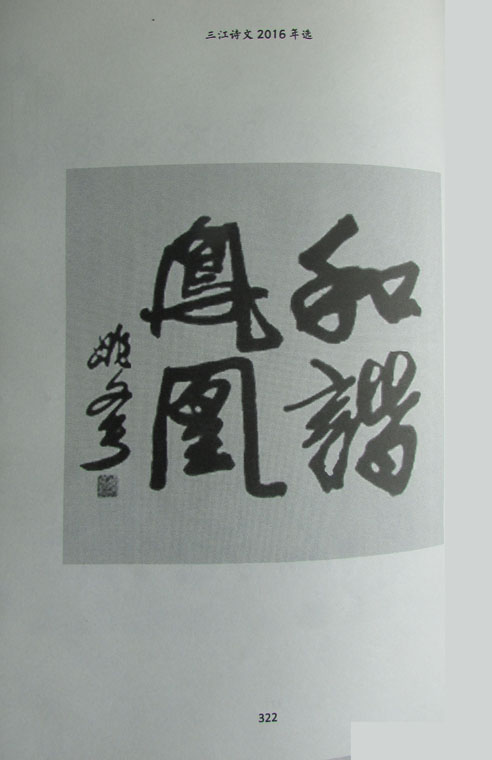 三江诗文2016年选
和諧
鳳凰
322